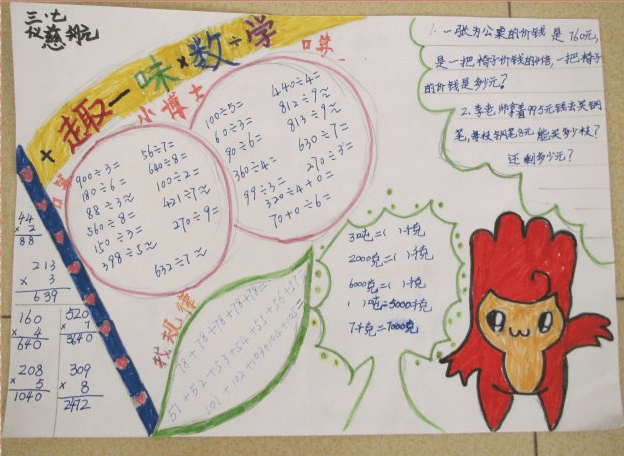 三.七
+趣一味×数÷学
小博士
口算
口算
900÷3=
180÷6=
88÷3≈
560÷8=
150÷3=
398÷5≈
56÷7=
640÷8=
100÷2=
421÷7≈
270÷9=
632÷7≈
100÷5=
60÷3=
90÷6=
360÷4=
99÷3=
320÷4+0=
70+0÷6=
440÷4=
812÷9≈
813÷9≈
630÷7=
270÷3=
1.一张为公桌的价钱是760元,
是一把椅子价钱的4倍,一把椅子
的价钱是多少元?
2.李老师拿着995元钱去买钢
笔,每枝钢笔8元能买多少枝?
还剩多少元?
3吨=( )千克
2000克=( )千克
6000克=( )千克
( )吨=5000千克
7千克=7000克
找规律
78+78+78+78+78=
51+52+53+54+55+56+57=
101+102+103+104+105=
44
×2
88
213
×3
639
160
×4
640
520
×7
3640
208
×5
1040
309
×8
2472